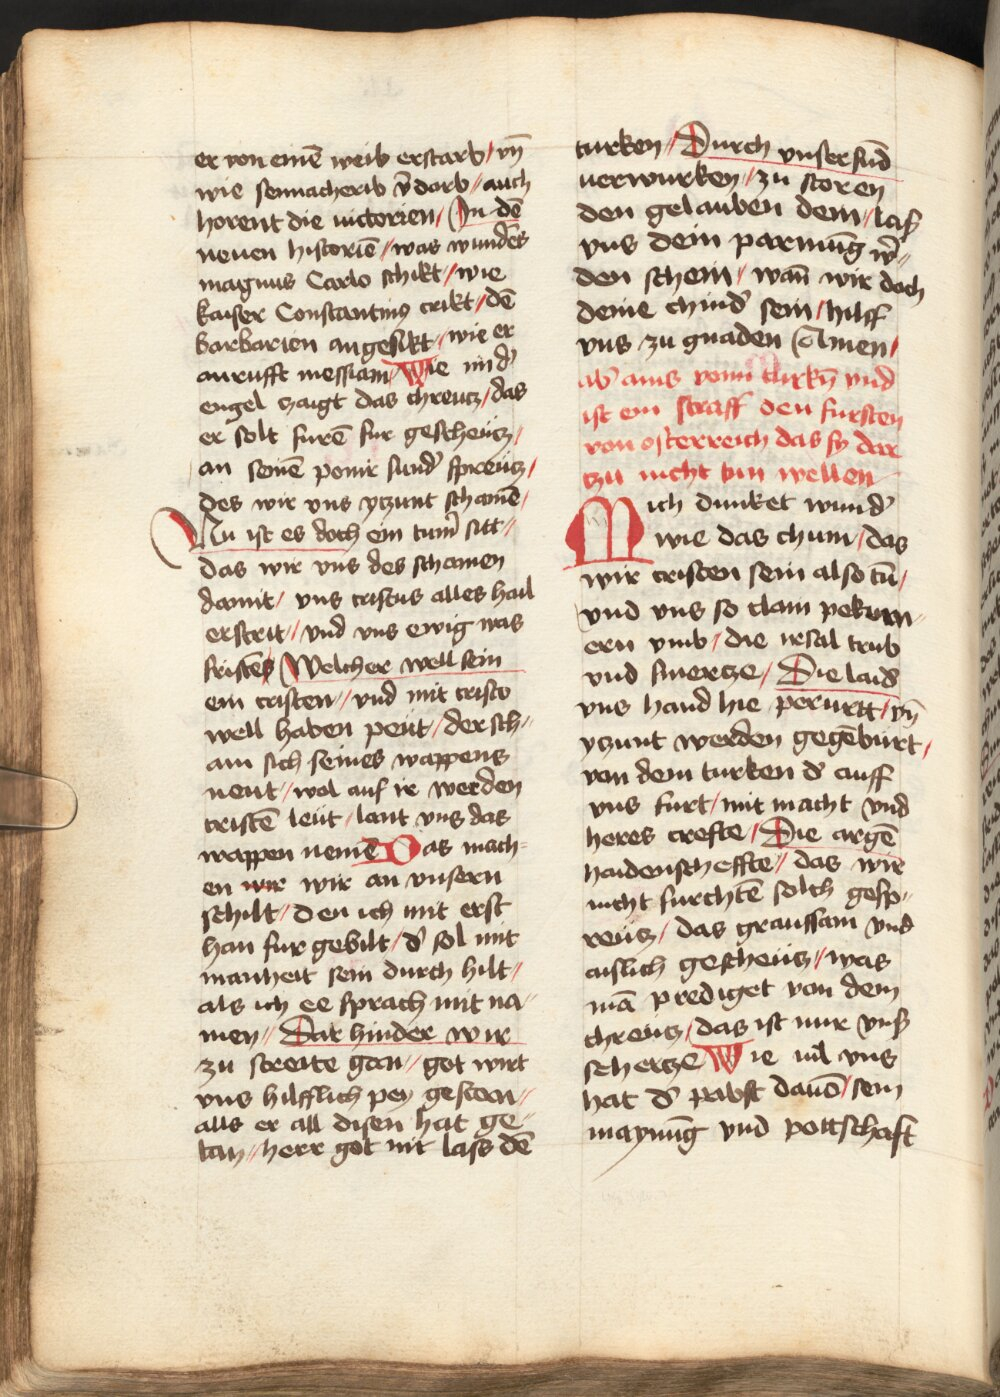 er von einē weib erstarb / vn̄
wie sennacherib v̄darb // auch
horent die victorien / In dē
neuen historiē // was wunders
magnus Carlo schikt // wie
kaiser Constantinus erikt / dē
barbarien angesikt / wie er
anrufft messiam / Wie im d̕
engel zaigt das chreucz / das
er solt furē fur gescheucz /
an seinē ponir sund̕ spreucz /
des wir vns yczunt schamē /
Nu ist es doch ein tum̄ sitt //
das wir vns des schamen
damit / vns cristus alles hail
erstrit // vnd vns ewig was
fristet / Welcher well sein
ein cristen // vnd mit cristo
well haben peut / der sch-
am sich seines wappens
neut / wol auf ir werden
cristē leüt / lant vns das
wappen nemē Das mach-
en wir an vnsern
schilt / den ich mit erst
han fur gebilt / d̕ sol mit
manheit sein durch hilt /
als ich ee sprach mit na-
men // Dar hinder wir
zu streite gan // got wirt
vns hilfflich pey gestan //
alls er all disen hat ge-
tan // herr got nit lass dē
turken / Durch vnser sund
verwurken // zu storen
den gelauben dem / las
vns dein parmūg w̕-
den schein / wan̄ wir doch
deine chind̕ sein / hilff
vns zu gnaden Amen /
ab̕ ains vom turkn̄ vnd
ist ein straff den fursten
von osterreich das sy dar
czu nicht tun wellen
Mich dunket wund̕
wie das chum / das
wir cristen sein also tū /
vnd vns so clain pekum-
ern vmb / die irsal trub
vnd swercze / Die laid
vns hand hie perurtt / vn̄
yczunt werden gegēburt /
von dem turken d̕ auff
vns furt / mit macht vnd
heres crefte / Die argē
haidenscheffte // das wir
nicht furchtē solch gesp-
reücz / das graussam vnd
aislich gescheücz // was
mā prediget von dem
chreucz / das ist nur vns̕
schercze Wie vil vns
hat d̕ pabst dauō / sein
maynūg vnd pottschafft